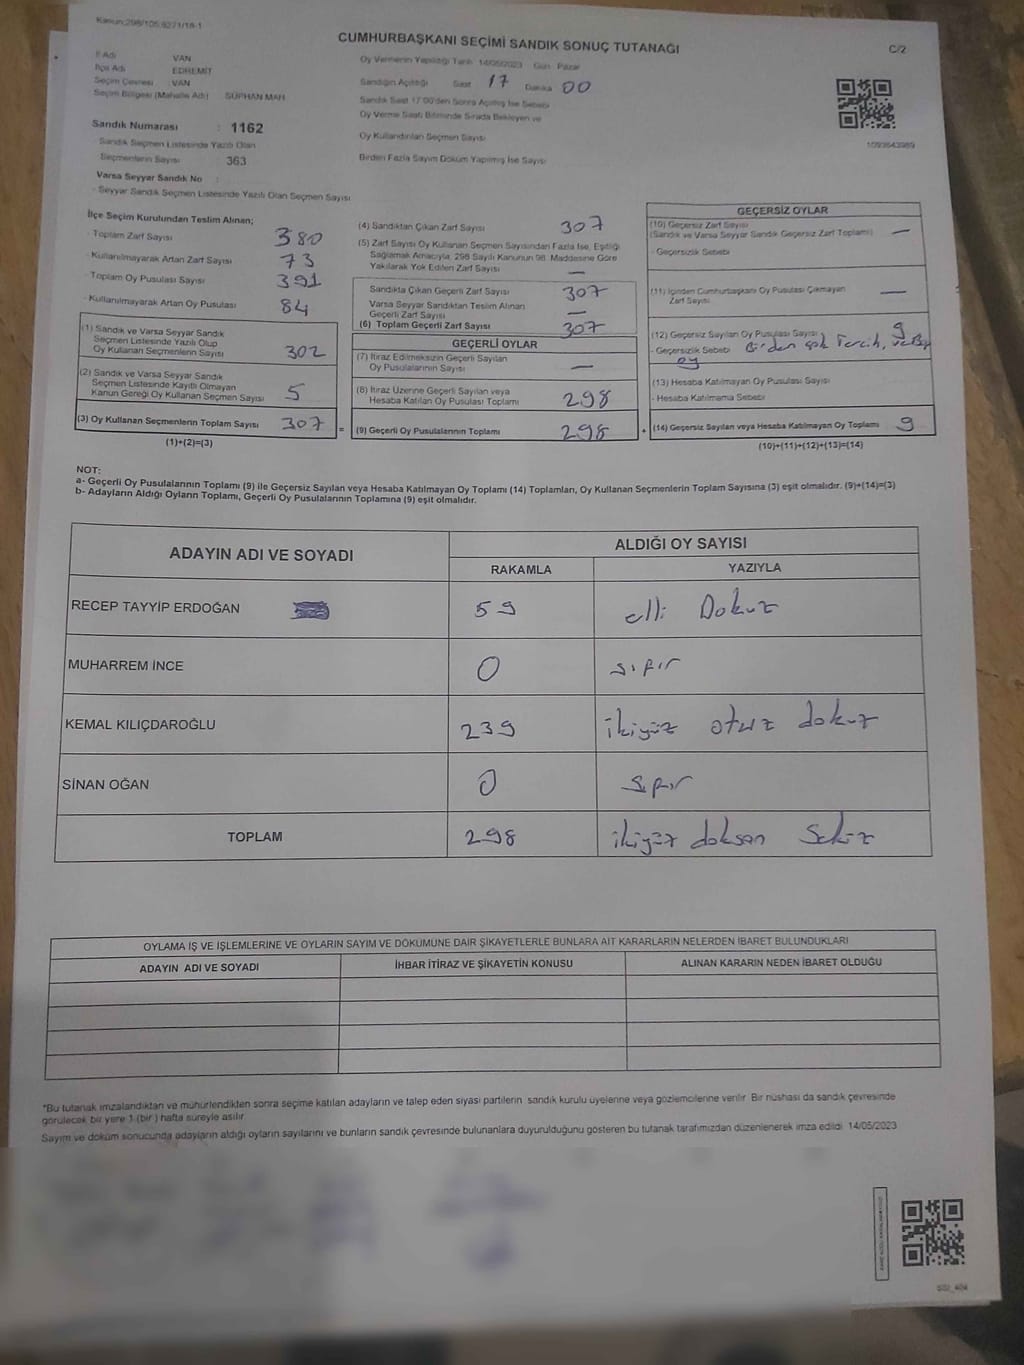 Kanun:298/105,6271/18-1
CUMHURBAŞKANI SEÇİMİ SANDIK SONUÇ TUTANAĞI
C/2
İl Adı VAN
İlçe Adı EDREMİT
Seçim Çevresi : VAN
Seçim Bölgesi (Mahalle Adı) SÜPHAN MAH
Sandık Numarası : 1162
Sandık Seçmen Listesinde Yazılı Olan
Seçmenlerin Sayısı 363
Varsa Seyyar Sandık No :
- Seyyar Sandık Seçmen Listesinde Yazılı Olan Seçmen Sayısı
Oy Vermenin Yapıldığı Tarih 14/05/2023 Gün Pazar
Sandığın Açıldığı Saat 17 Dakika 00
Sandık Saat 17:00'den Sonra Açılmış İse Sebebi
Oy Verme Saati Bitiminde Sırada Bekleyen ve
Oy Kullandırılan Seçmen Sayısı
Birden Fazla Sayım Döküm Yapılmış İse Sayısı
1093643989
İlçe Seçim Kurulundan Teslim Alınan;
- Toplam Zarf Sayısı 380
- Kullanılmayarak Artan Zarf Sayısı 73
- Toplam Oy Pusulası Sayısı 391
- Kullanılmayarak Artan Oy Pusulası 84
(1) Sandık ve Varsa Seyyar Sandık
Seçmen Listesinde Yazılı Olup
Oy Kullanan Seçmenlerin Sayısı 302
(2) Sandık ve Varsa Seyyar Sandık
Seçmen Listesinde Kayıtlı Olmayan
Kanun Gereği Oy Kullanan Seçmen Sayısı 5
(3) Oy Kullanan Seçmenlerin Toplam Sayısı 307 =
(1)+(2)=(3)
(4) Sandıktan Çıkan Zarf Sayısı 307
(5) Zarf Sayısı Oy Kullanan Seçmen Sayısından Fazla İse, Eşitliği
Sağlamak Amacıyla, 298 Sayılı Kanunun 98. Maddesine Göre
Yakılarak Yok Edilen Zarf Sayısı —
Sandıkta Çıkan Geçerli Zarf Sayısı 307
Varsa Seyyar Sandıktan Teslim Alınan
Geçerli Zarf Sayısı —
(6) Toplam Geçerli Zarf Sayısı 307
GEÇERLİ OYLAR
(7) İtiraz Edilmeksizin Geçerli Sayılan
Oy Pusulalarının Sayısı —
(8) İtiraz Üzerine Geçerli Sayılan veya
Hesaba Katılan Oy Pusulası Toplamı 298
(9) Geçerli Oy Pusulalarının Toplamı 298 +
GEÇERSİZ OYLAR
(10) Geçersiz Zarf Sayısı
(Sandık ve Varsa Seyyar Sandık Geçersiz Zarf Toplamı) —
- Geçersizlik Sebebi
(11) İçinden Cumhurbaşkanı Oy Pusulası Çıkmayan
Zarf Sayısı —
(12) Geçersiz Sayılan Oy Pusulası Sayısı 9
- Geçersizlik Sebebi Birden çok Tercih,
oy
(13) Hesaba Katılmayan Oy Pusulası Sayısı
- Hesaba Katılmama Sebebi
(14) Geçersiz Sayılan veya Hesaba Katılmayan Oy Toplamı 9
(10)+(11)+(12)+(13)=(14)
NOT:
a- Geçerli Oy Pusulalarının Toplamı (9) ile Geçersiz Sayılan veya Hesaba Katılmayan Oy Toplamı (14) Toplamları, Oy Kullanan Seçmenlerin Toplam Sayısına (3) eşit olmalıdır. (9)+(14)=(3)
b- Adayların Aldığı Oyların Toplamı, Geçerli Oy Pusulalarının Toplamına (9) eşit olmalıdır.
ADAYIN ADI VE SOYADI
ALDIĞI OY SAYISI
RAKAMLA YAZIYLA
RECEP TAYYİP ERDOĞAN 59 elli Dokuz
MUHARREM İNCE 0 sıfır
KEMAL KILIÇDAROĞLU 239 ikiyüz otuz dokuz
SİNAN OĞAN 0 sıfır
TOPLAM 298 ikiyüz doksan Sekiz
OYLAMA İŞ VE İŞLEMLERİNE VE OYLARIN SAYIM VE DÖKÜMÜNE DAİR ŞİKAYETLERLE BUNLARA AİT KARARLARIN NELERDEN İBARET BULUNDUKLARI
ADAYIN ADI VE SOYADI İHBAR İTİRAZ VE ŞİKAYETİN KONUSU ALINAN KARARIN NEDEN İBARET OLDUĞU
*Bu tutanak imzalandıktan ve mühürlendikten sonra seçime katılan adayların ve talep eden siyasi partilerin sandık kurulu üyelerine veya gözlemcilerine verilir. Bir nüshası da sandık çevresinde
görülecek bir yere 1 (bir ) hafta süreyle asılır.
Sayım ve döküm sonucunda adayların aldığı oyların sayılarını ve bunların sandık çevresinde bulunanlara duyurulduğunu gösteren bu tutanak tarafımızdan düzenlenerek imza edildi. 14/05/2023